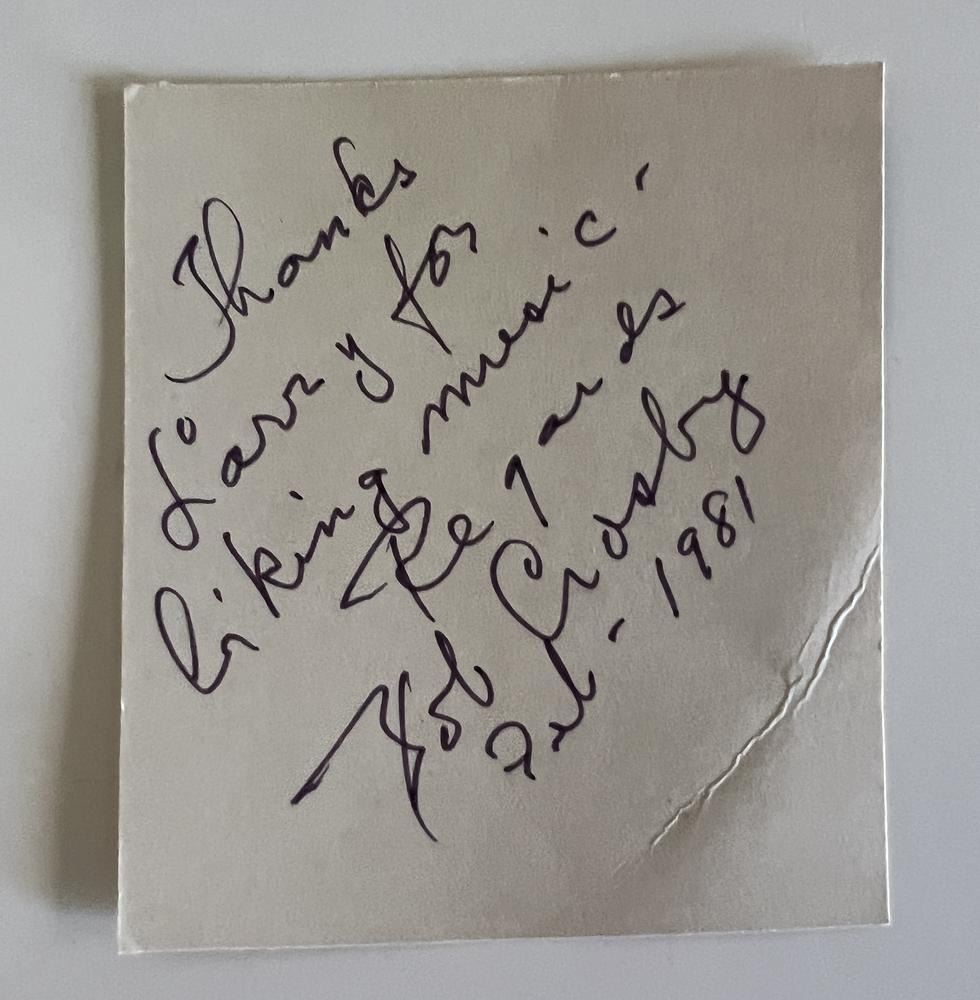 Thanks
Larry for
liking music
Regards
Bob Crosby
Feb - 1981